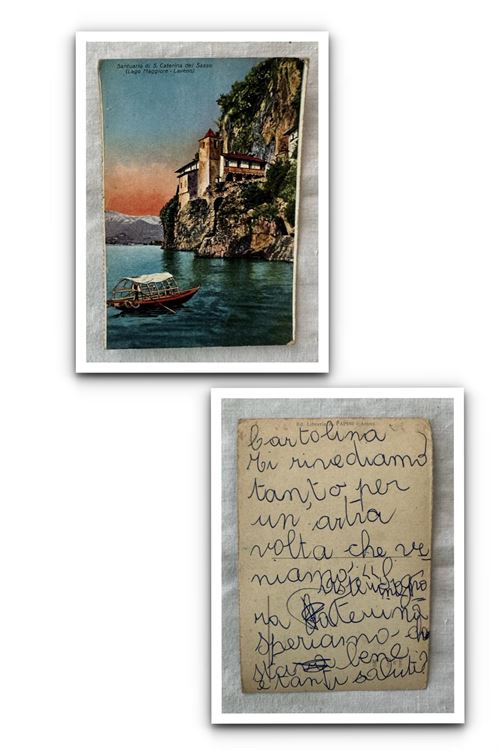 Santuario di S. Caterina del Sasso
(Lago Maggiore - Laveno)
Ed. Libreria PAPINI - Arona
Cartolina
Ti rivediamo
tanto per
un artra
volta che ve
niamo
ra Caterina
speriamo che
bene
e tanti saluti